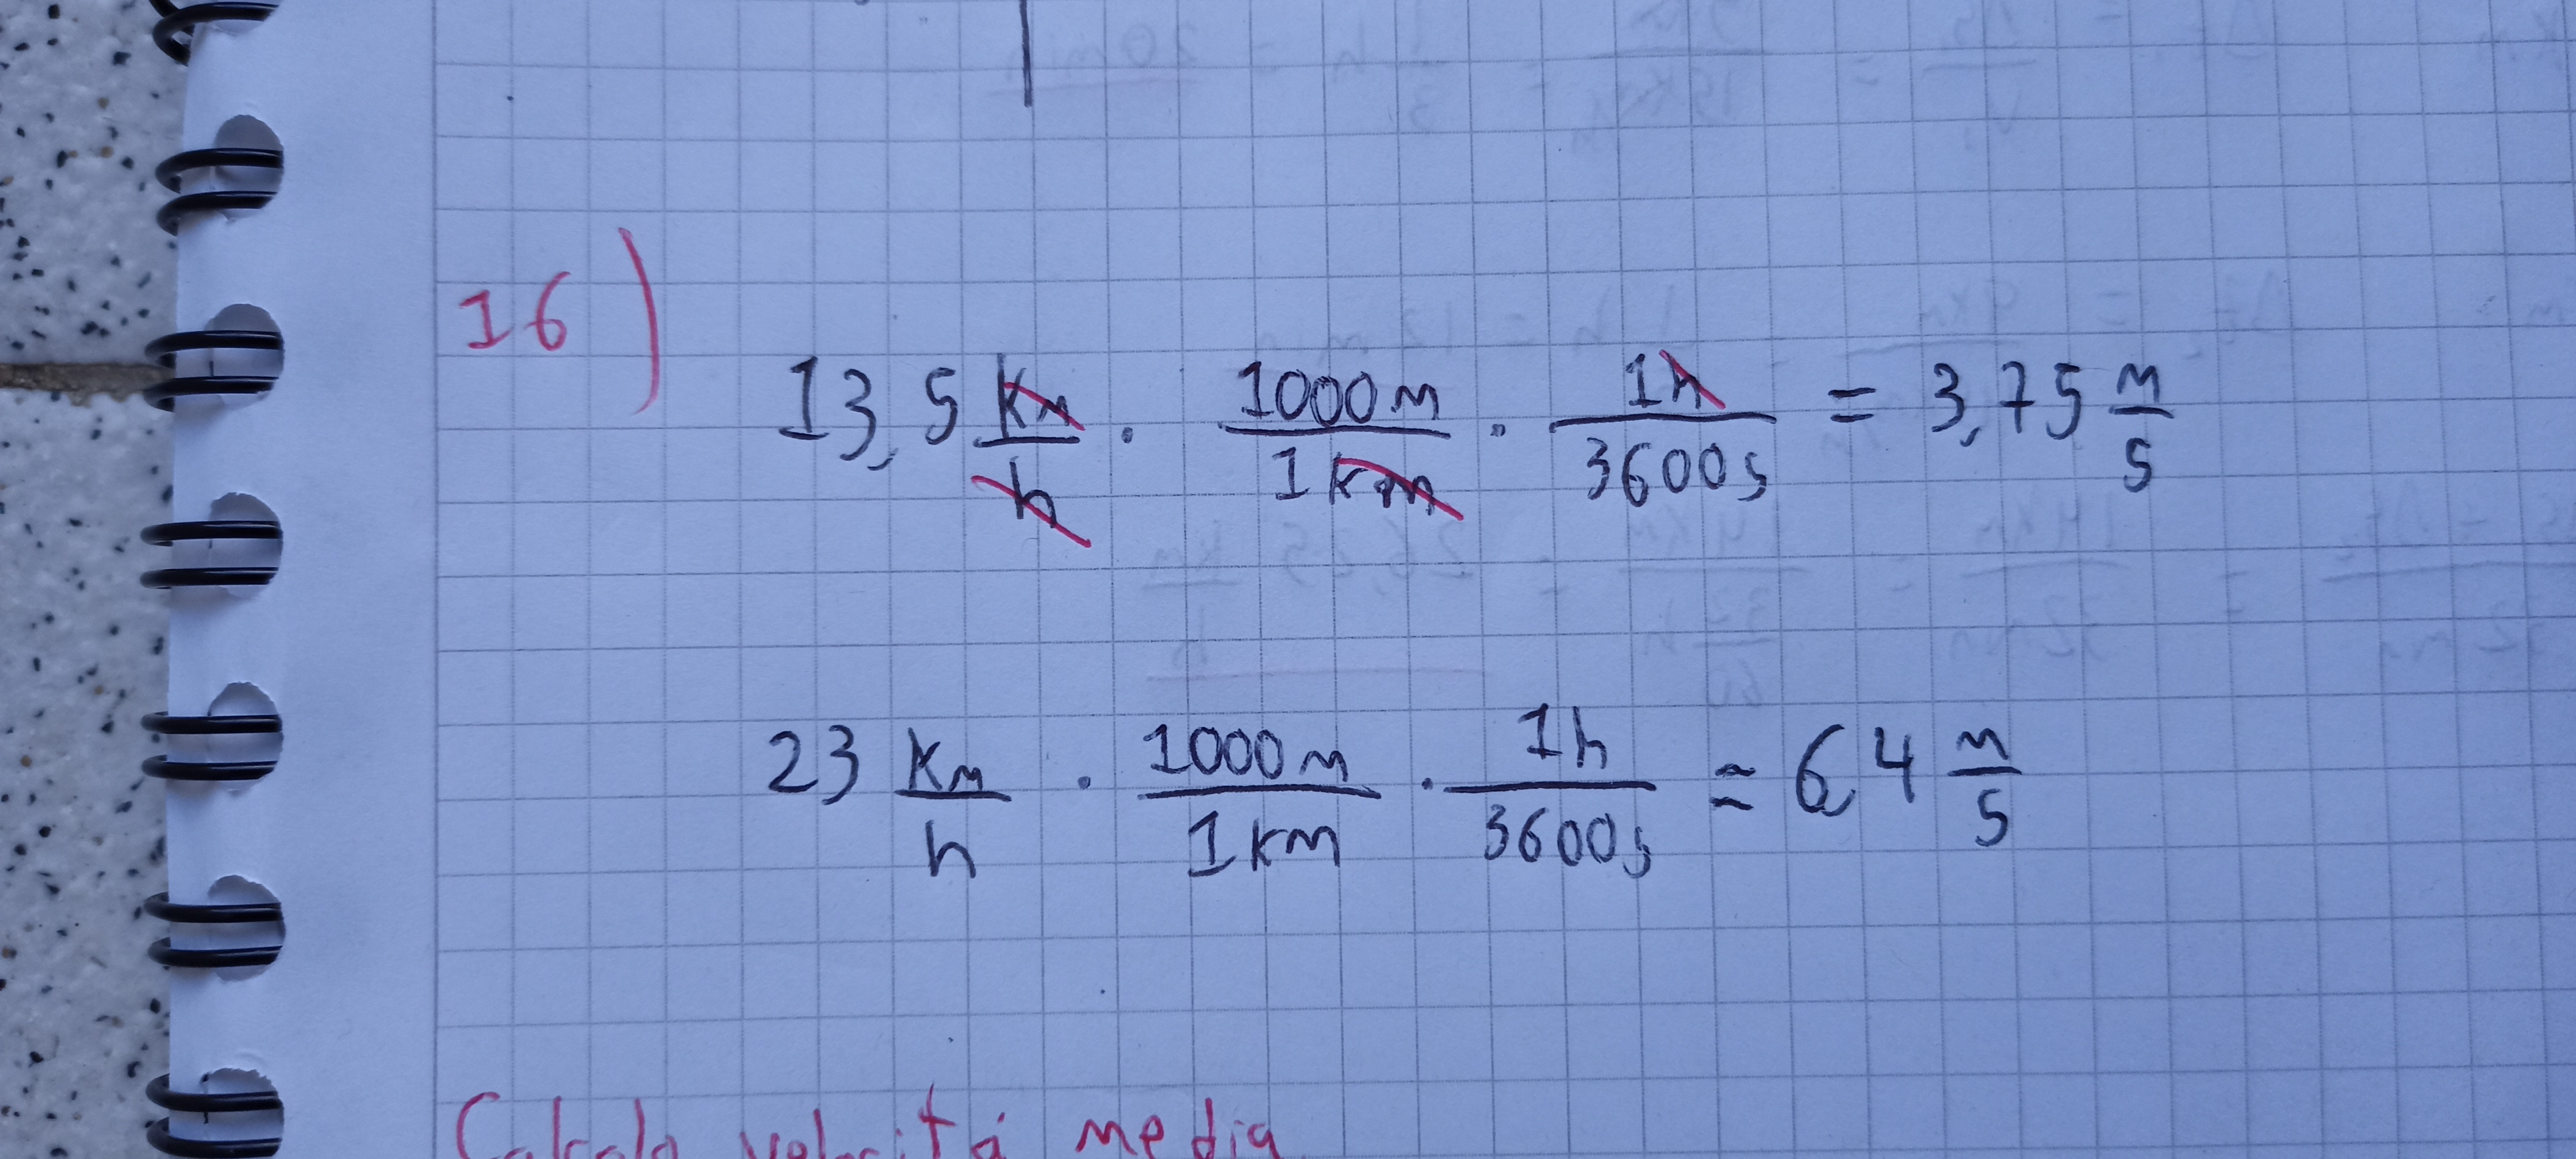 16)
13,5 km/h · 1000m/1km · 1h/3600s = 3,75 m/s
23 Km/h · 1000m/1km · 1h/3600s ≃ 6,4 m/s
Calcolo velocità media